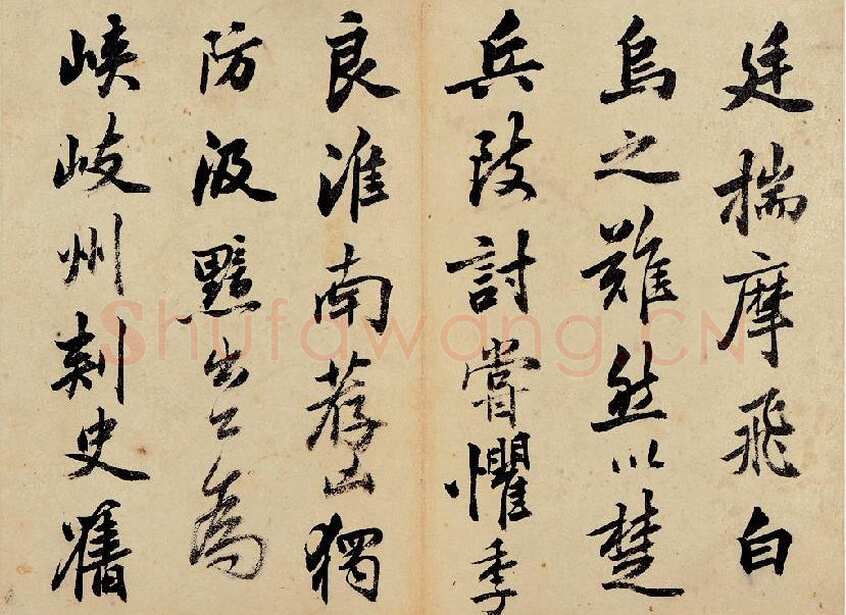 廷揣摩飛白
烏之難然以楚
兵討嘗懼季
良淮南荐獨
防汲黯出公為
峽岐州刺史舊
Shufawang.CN